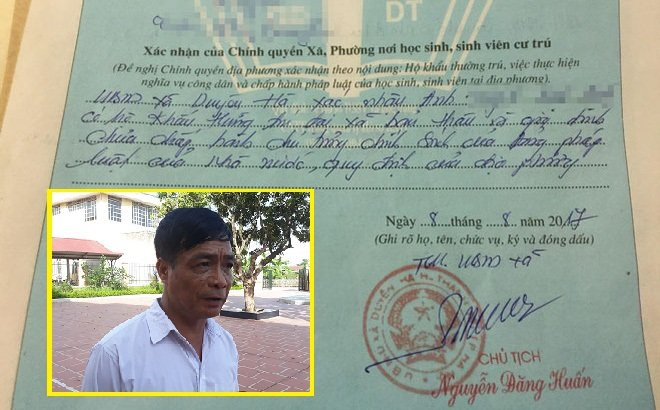 DT
Xác nhận của Chính quyền Xã, Phường nơi học sinh, sinh viên cư trú
(Đề nghị Chính quyền địa phương xác nhận theo nội dung: Hộ khẩu thường trú, việc thực hiện
nghĩa vụ công dân và chấp hành pháp luật của học sinh, sinh viên tại địa phương).
UBND xã Duyên Hà xác nhận Anh
có hộ khẩu thường trú tại xã bản thân và gia đình
chưa chấp hành chủ trương chính sách của Đảng pháp
luật của nhà nước, quy định của địa phương
Ngày 8 tháng 8 năm 2017
(Ghi rõ họ, tên, chức vụ, ký và đóng dấu)
TM. UBND xã
CHỦ TỊCH
Nguyễn Đăng Huấn